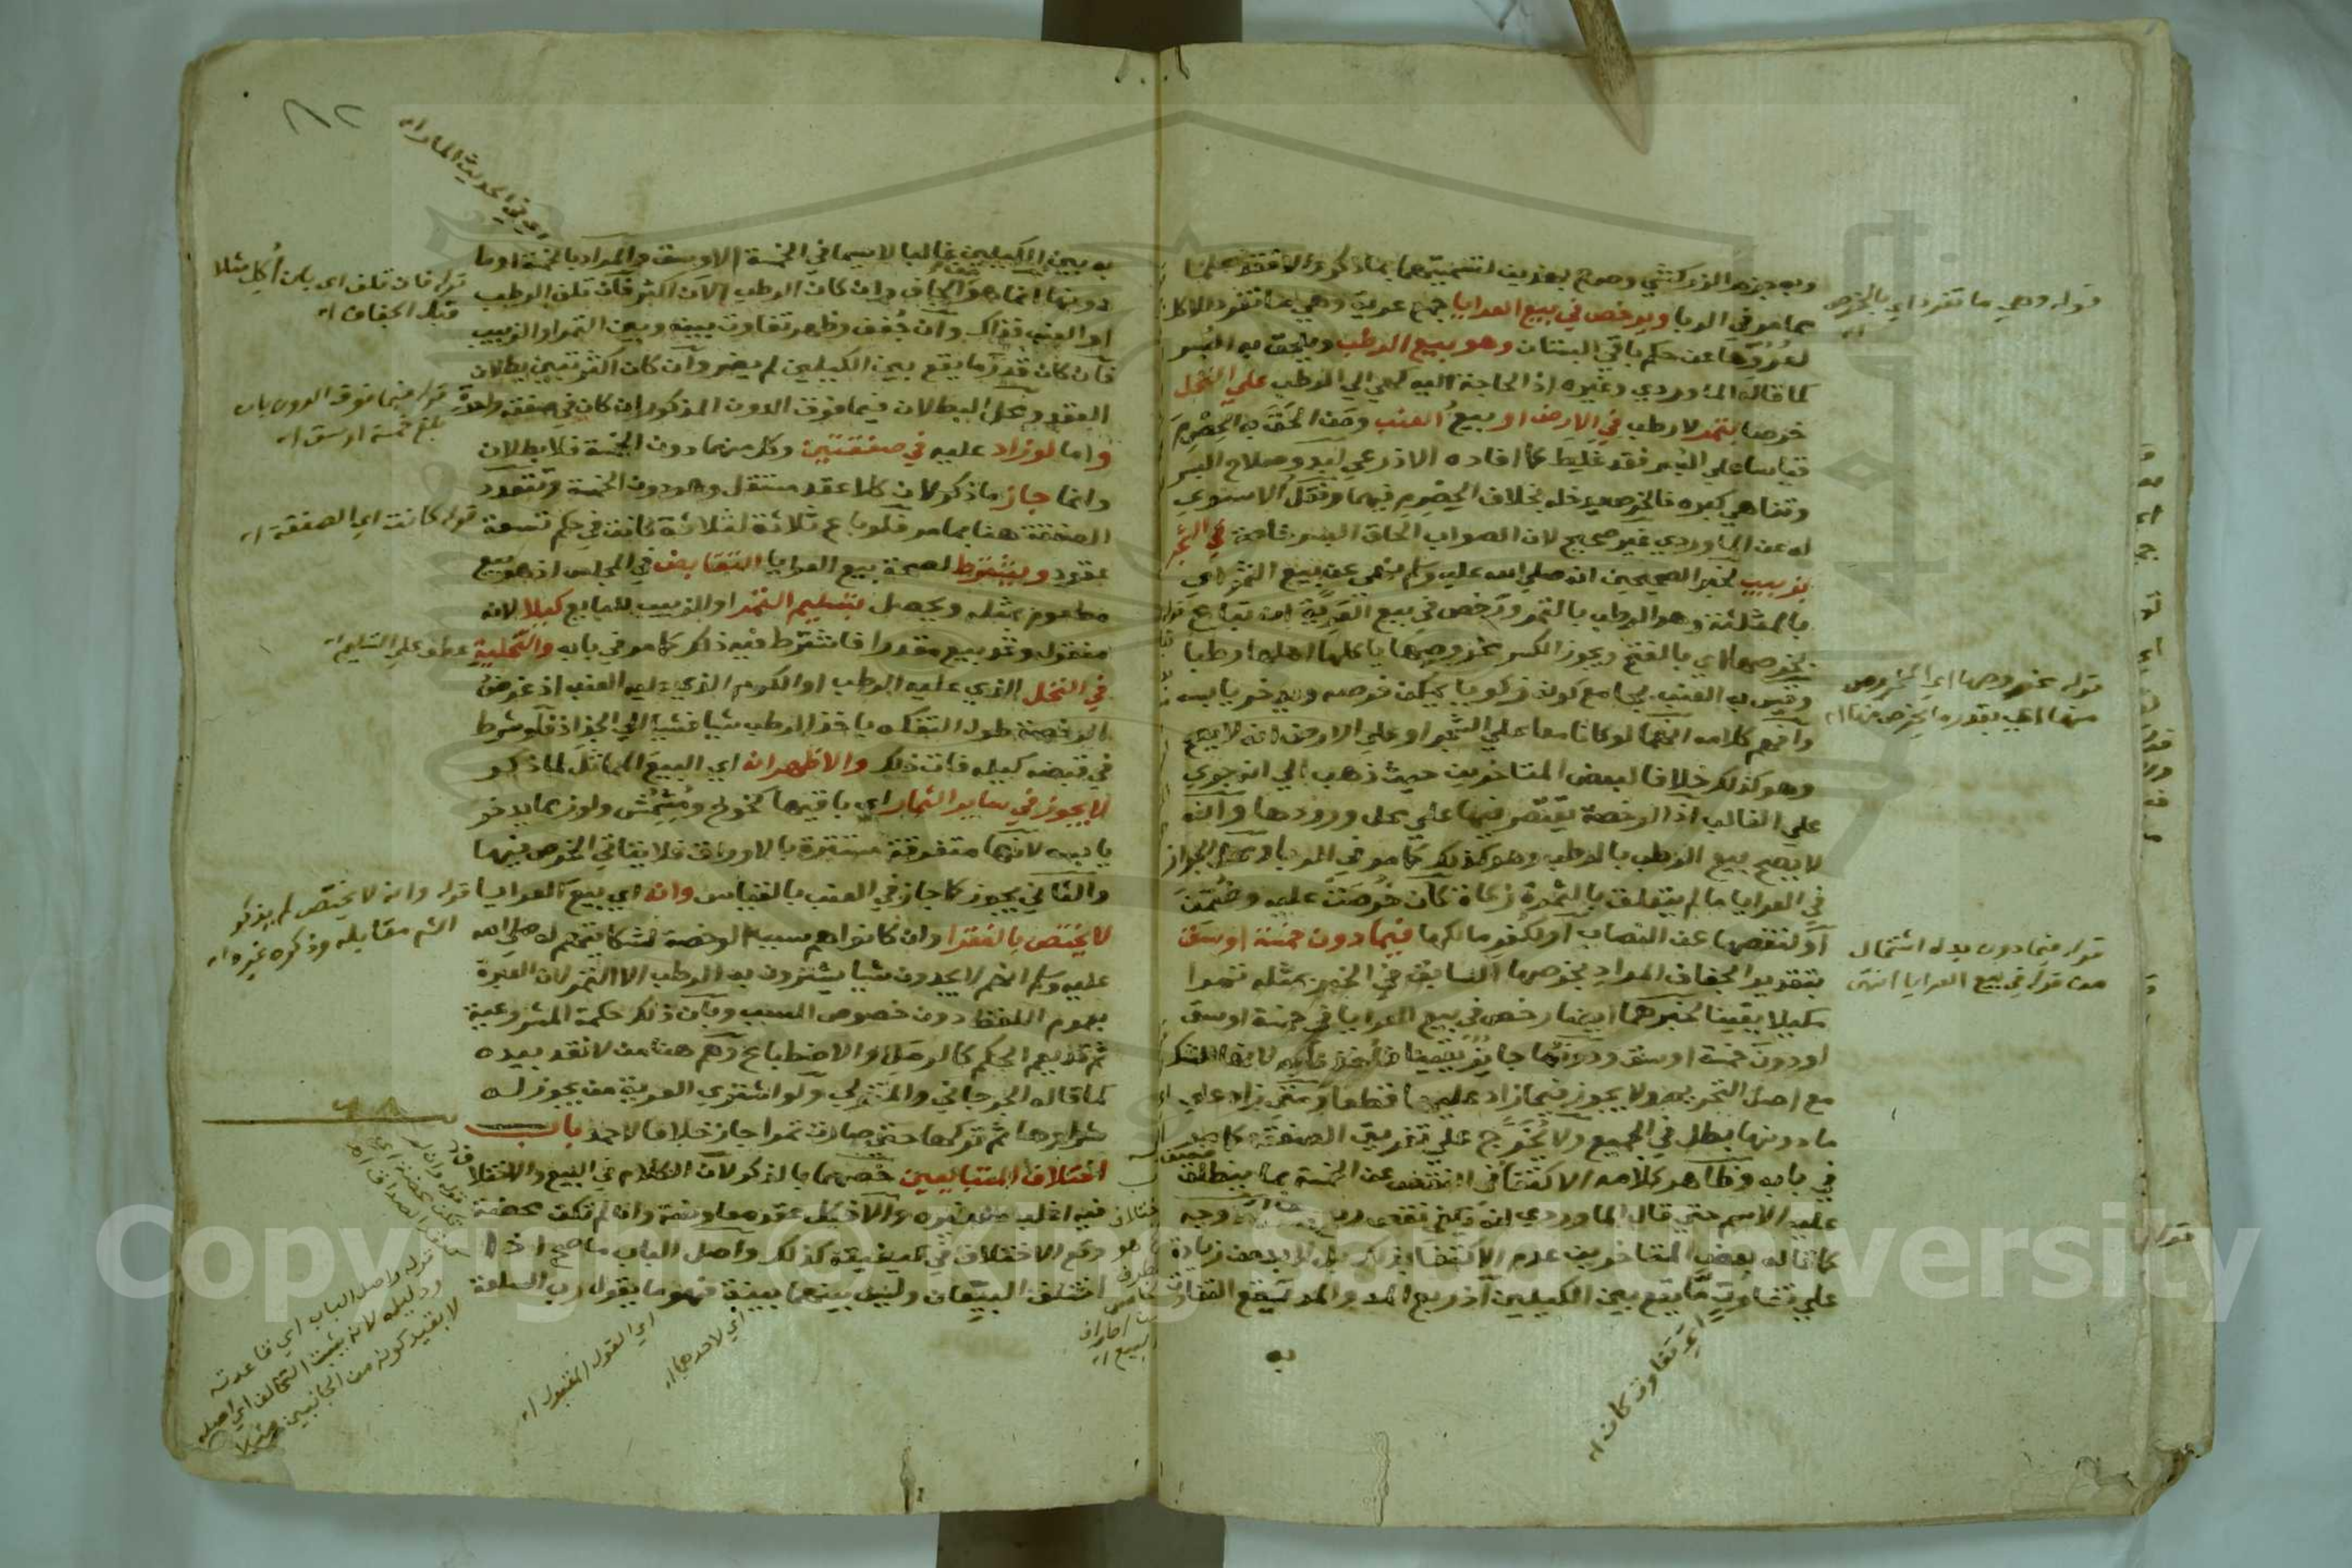 وبه جزم الزركشي وصرح بهذين لتضمنهما بما ذكر والافقد علما
مما مر في الربا ويرخص في بيع العرايا جمع عرية وهي ما تفرد للاكل
لعروها عن حكم باقي البستان وهو بيع الرطب ويلحق به البسر
كما قاله الماوردي وغيره اذ الحاجة اليه كهي الى الرطب على النخل
خرصا بتمر لا رطب في الارض او بيع العنب ومن الحق به الحصرم
قياسا على البسر فقد غلط كما افاده الاذرعي لبدو صلاح البسر
وتناهي كبره فالخرص يدخله بخلاف الحصرم فيهما ونقل الاسنوي
له عن الماوردي غير صحيح لان الصواب الحاق البسر خاصة في الشجر
بزبيب لخبر الصحيحين انه صلى الله عليه وسلم نهى عن بيع الثمر اي
بالمثلثة وهو الرطب بالتمر ورخص في بيع العرية ان تباع
بخرصها اي بالفتح ويجوز الكسر مخروصها ياكلها اهلها رطبا
وقيس به العنب بجامع كونه زكويا يمكن خرصه ويدخر يابسه
وافهم كلامه انهما لو كانا معا على الشجر او على الارض انه لا يصح
وهو كذلك خلافا لبعض المتاخرين حيث ذهب الى انه جري
على الغالب اذ الرخصة يقتصر فيها على محل ورودها وانه
لا يصح بيع الرطب بالرطب وهو كذلك كما مر في الربا ومحل الجواز
في العرايا ما لم يتعلق بالثمرة زكاة كان خرصت عليه وضمن
او لنقصها عن النصاب او لكفر مالكها فيما دون خمسة اوسق
بتقدير الجفاف المراد بخرصها السابق في الخبر بمثله تمرا
مكيلا يقينا لخبرهما ايضا رخص في بيع العرايا في خمسة اوسق
او دون خمسة اوسق ودونها جايز يقينا
مع اصل التحريم ولا يجوز فيما زاد عليها قطعا ومتى زاد على
ما دونها بطل في الجميع ولا يخرج على تفريق الصفقة كما مر
في بابه وظاهر كلامه الاكتفا في النقص عن الخمسة بما ينطلق
عليه الاسم حتى قال الماوردي انه يكفي نقص ربع
كما قاله بعض المتاخرين عدم الاكتفا بذلك بل لا بد من زيادة
على تفاوت ما يقع بين الكيلين اذ ربع المد والمد يقع التفاوت
به
قوله وهي ما تفرد اي بالخرص اه
قوله مخروصها اي المخروص
منها اي بقدره بخرص منها اه
قوله فيما دون بدل اشتمال
من قوله في بيع العرايا انتهى
اي تفاوت كان اه
٨٢
اي في الحديث المار اه
به بين الكيلين غالبا لا سيما في الخمسة الاوسق والمراد بالخمسة او ما
دونها انما هو الجاف وان كان الرطب الان اكثر فان تلف الرطب
او العنب فذاك وان جفف وظهر تفاوت بينه وبين التمر او الزبيب
فان كان قدر ما يقع بين الكيلين لم يضر وان كان اكثر تبين بطلان
العقد ومحل البطلان فيما فوق الدون المذكور ان كان في صفقة واحدة
واما لو زاد عليه في صفقتين وكل منهما دون الخمسة فلا بطلان
وانما جاز ما ذكر لان كلا عقد مستقل وهو دون الخمسة وتتعدد
الصفقة هنا بما مر فلو باع ثلاثة لثلاثة كانت في حكم تسعة
عقود ويشترط لصحة بيع العرايا التقابض في المجلس اذ هو بيع
مطعوم بمثله ويحصل بتسليم التمر او الزبيب للبايع كيلا لانه
منقول وقد بيع مقدرا فاشترط فيه ذلك كما مر في بابه والتخلية
في النخل الذي عليه الرطب او الكرم الذي عليه العنب اذ غرض
الرخصة طول التفكه ياخذ الرطب شيا فشيا الى الجذاذ فلو شرط
في قبضه كيله فات ذلك والاظهر انه اي البيع المماثل لما ذكر
لا يجوز في ساير الثمار اي باقيها كخوخ ومشمش ولوز مما يدخر
يابسه لانها متفرقة مستترة بالاوراق فلا يتاتى الخرص فيها
والثاني يجوز كما جاز في العنب بالقياس وانه اي بيع العرايا
لا يختص بالفقرا وان كانوا هم سبب الرخصة لشكايتهم له صلى الله
عليه وسلم انهم لا يجدون شيا يشترون به الرطب الا التمر لان العبرة
بعموم اللفظ دون خصوص السبب وبان ذلك حكمة المشروعية
ثم قد يعم الحكم كالرمل والاضطباع وهم هنا من لا نقد بيده
كما قاله الجرجاني والمتولي ولو اشترى العرية من يجوز له
شراوها ثم تركها حتى صارت تمرا جاز خلافا لاحمد باب
اختلاف المتبايعين خصهما بالذكر لان الكلام في البيع والاختلاف
فيه اغلب من غيره والا فكل عقد معاوضة وان لم تكن محضة
وقع الاختلاف في كيفيته كذلك واصل الباب ما صح اذا
اختلف البيعان وليس بينهما بينة فهو ما يقول رب السلعة
قوله فان تلف اي بان اكل مثلا
قبل الجفاف اه
قوله فيما فوق الدون بان
بلغ خمسة اوسق اه
قوله كانت اي الصفقة اه
عطف على التسليم اه
قوله وانه لا يختص لم يذكر
الشم مقابله وذكره غيره اه
قوله واصل الباب اي قاعدته
ودليله لانه يثبت التحالف اي اصله
لا بقيد كونه من الجانبين
اي القول المقبول اه
اي لاحدهما اه
Copyright © King Saud University